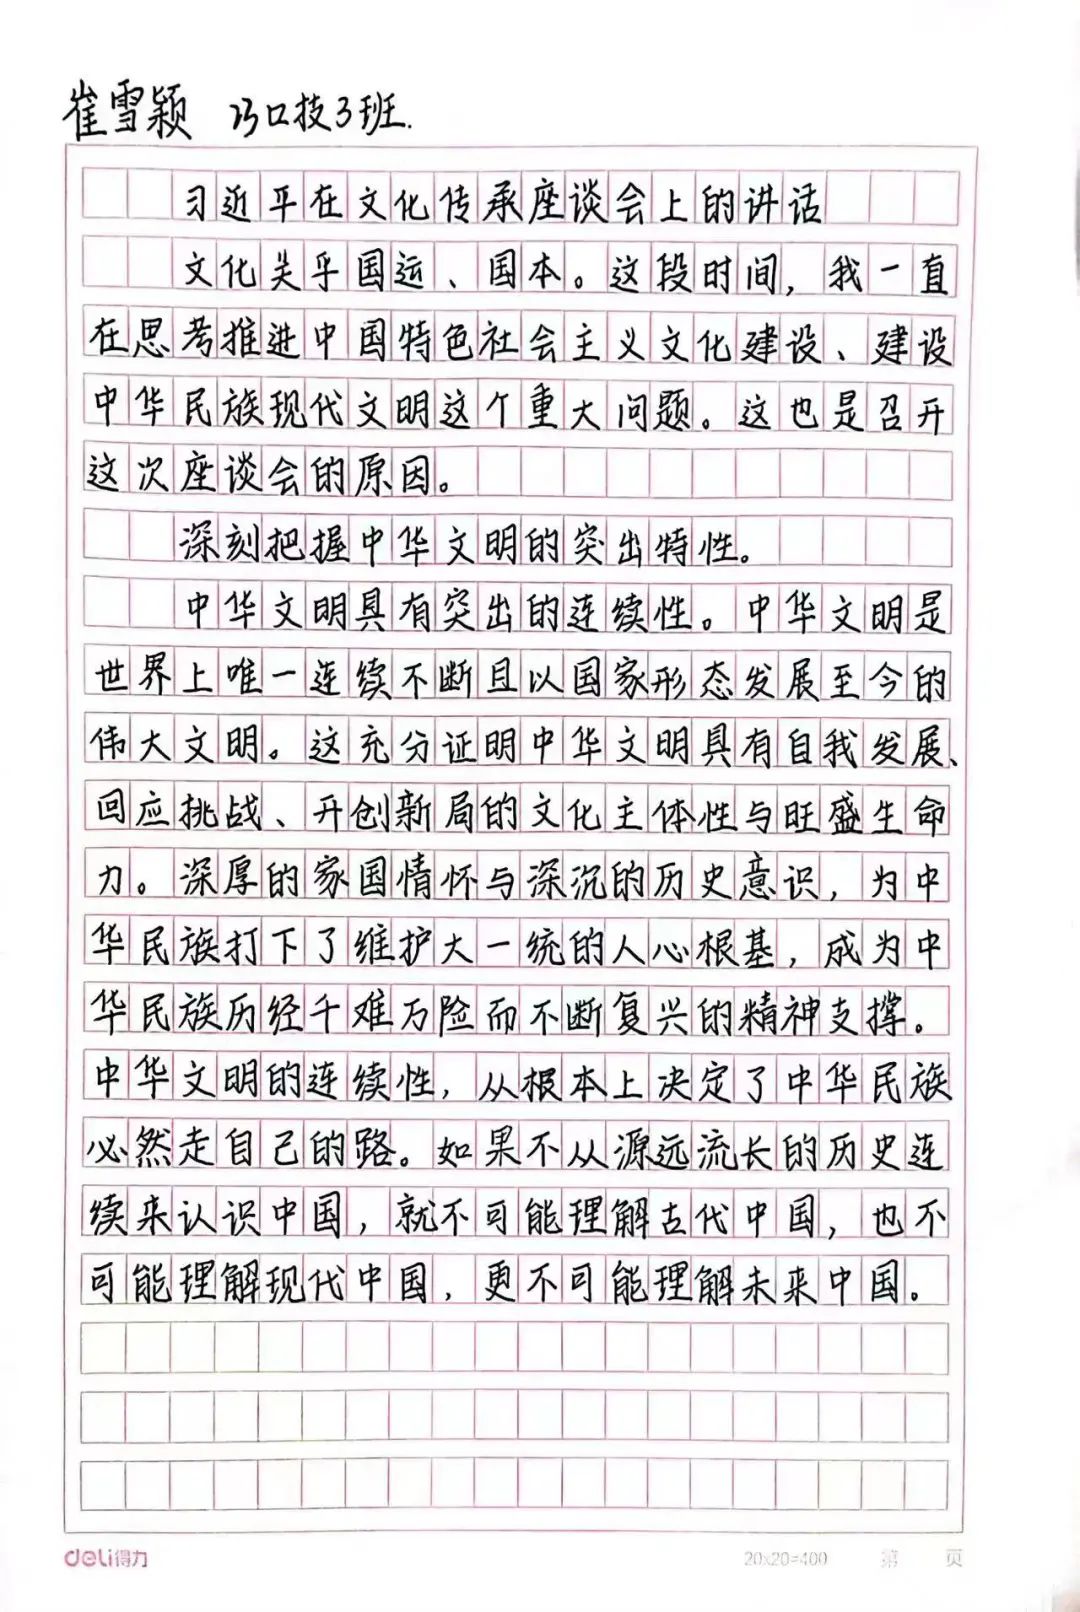 崔雪颖 23口技3班.
习近平在文化传承座谈会上的讲话
文化关乎国运、国本。这段时间，我一直
在思考推进中国特色社会主义文化建设、建设
中华民族现代文明这个重大问题。这也是召开
这次座谈会的原因。
深刻把握中华文明的突出特性。
中华文明具有突出的连续性。中华文明是
世界上唯一连续不断且以国家形态发展至今的
伟大文明。这充分证明中华文明具有自我发展、
回应挑战、开创新局的文化主体性与旺盛生命
力。深厚的家国情怀与深沉的历史意识，为中
华民族打下了维护大一统的人心根基，成为中
华民族历经千难万险而不断复兴的精神支撑。
中华文明的连续性，从根本上决定了中华民族
必然走自己的路。如果不从源远流长的历史连
续来认识中国，就不可能理解古代中国，也不
可能理解现代中国，更不可能理解未来中国。
deli得力 20x20=400 第 页